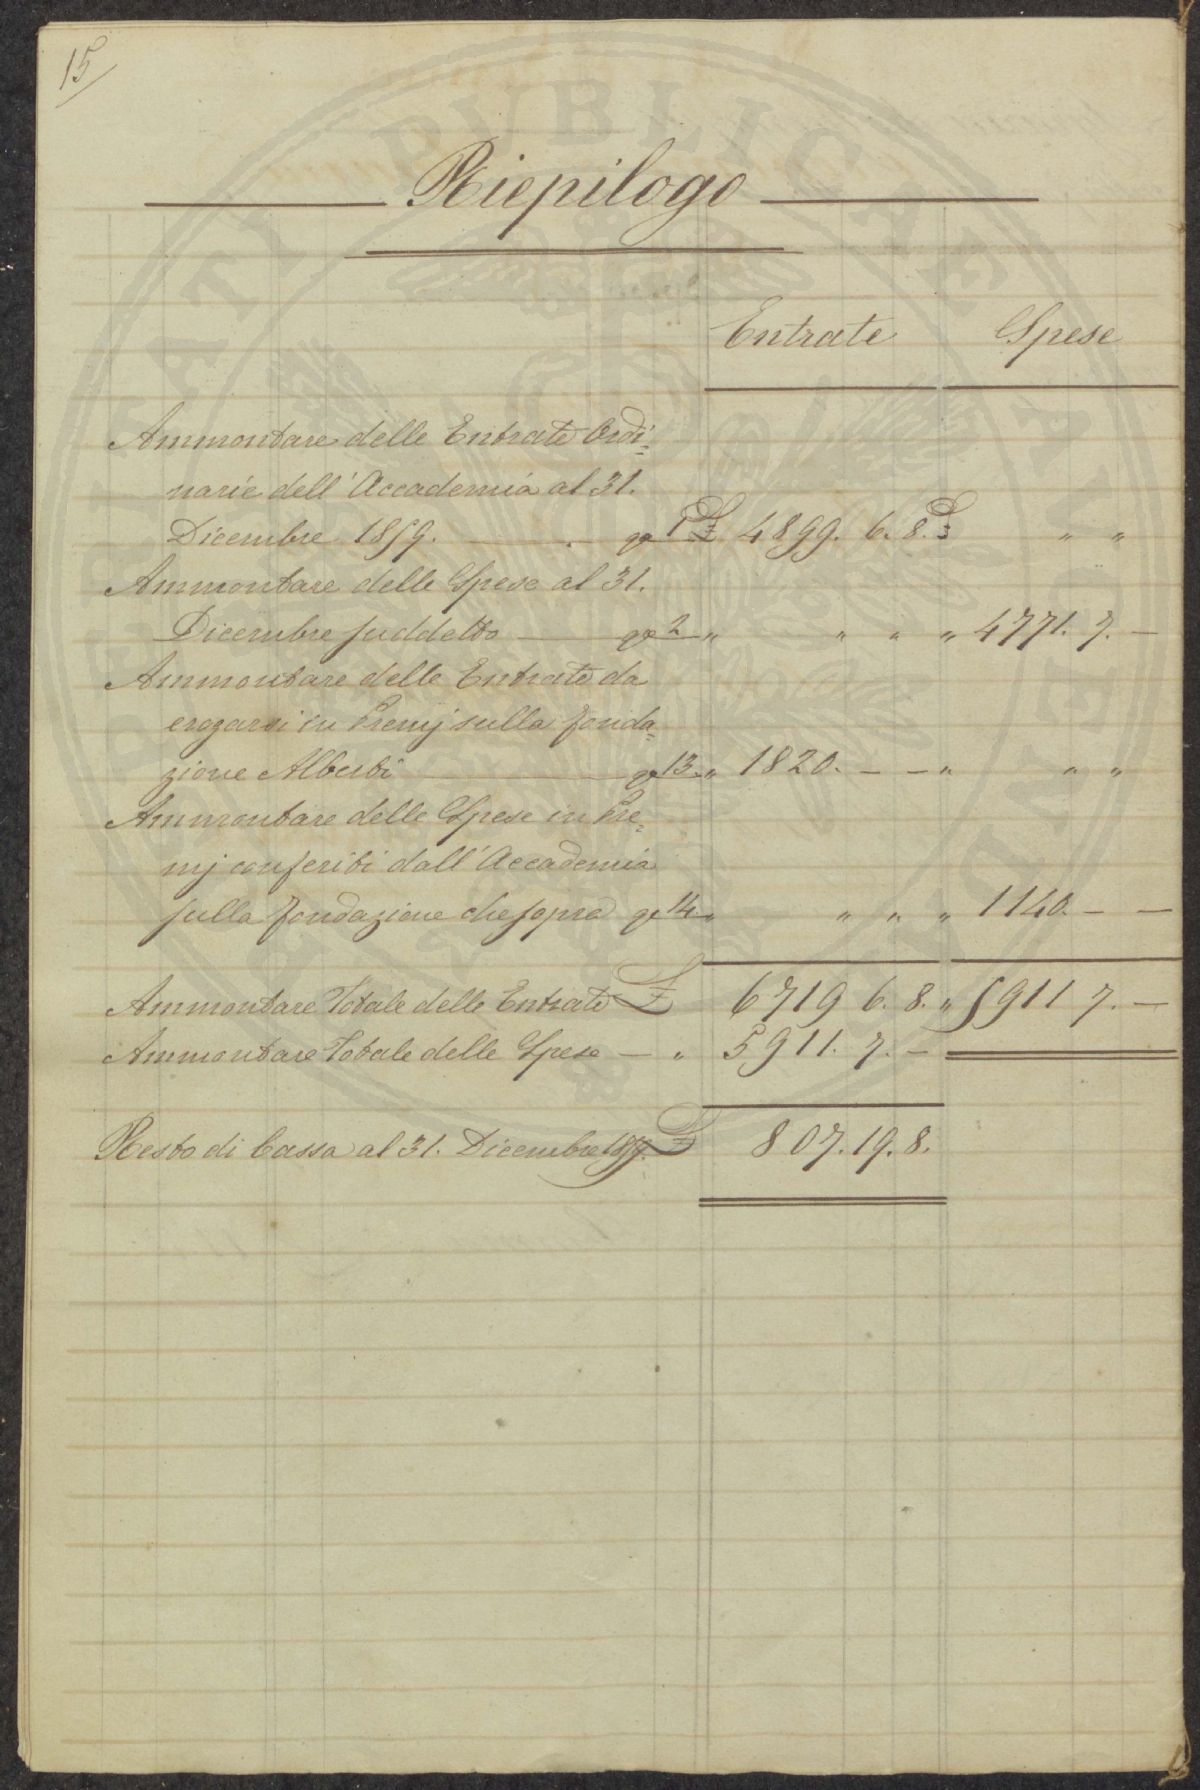 15
Riepilogo
Entrate Spese
Ammontare delle Entrate Ordi=
narie dell'Accademia al 31.
Dicembre 1859. 1 £ 4899. 6. 8. £ " "
Ammontare delle Spese al 31.
Dicembre suddetto — 2 " " " " 4771. 7. —
Ammontare delle Entrate da
erogarsi in Premj sulla fonda=
zione Alberti — 13. " 1820. — — " " "
Ammontare delle Spese in Pre=
mj conferiti dall'Accademia
sulla fondazione che sopra 14. " " " " 1140. — —
Ammontare Totale delle Entrate £ 6719 6. 8. " 5911 7. —
Ammontare Totale delle Spese — " 5911. 7. —
Resto di Cassa al 31. Dicembre 1859. £ 807. 19. 8.